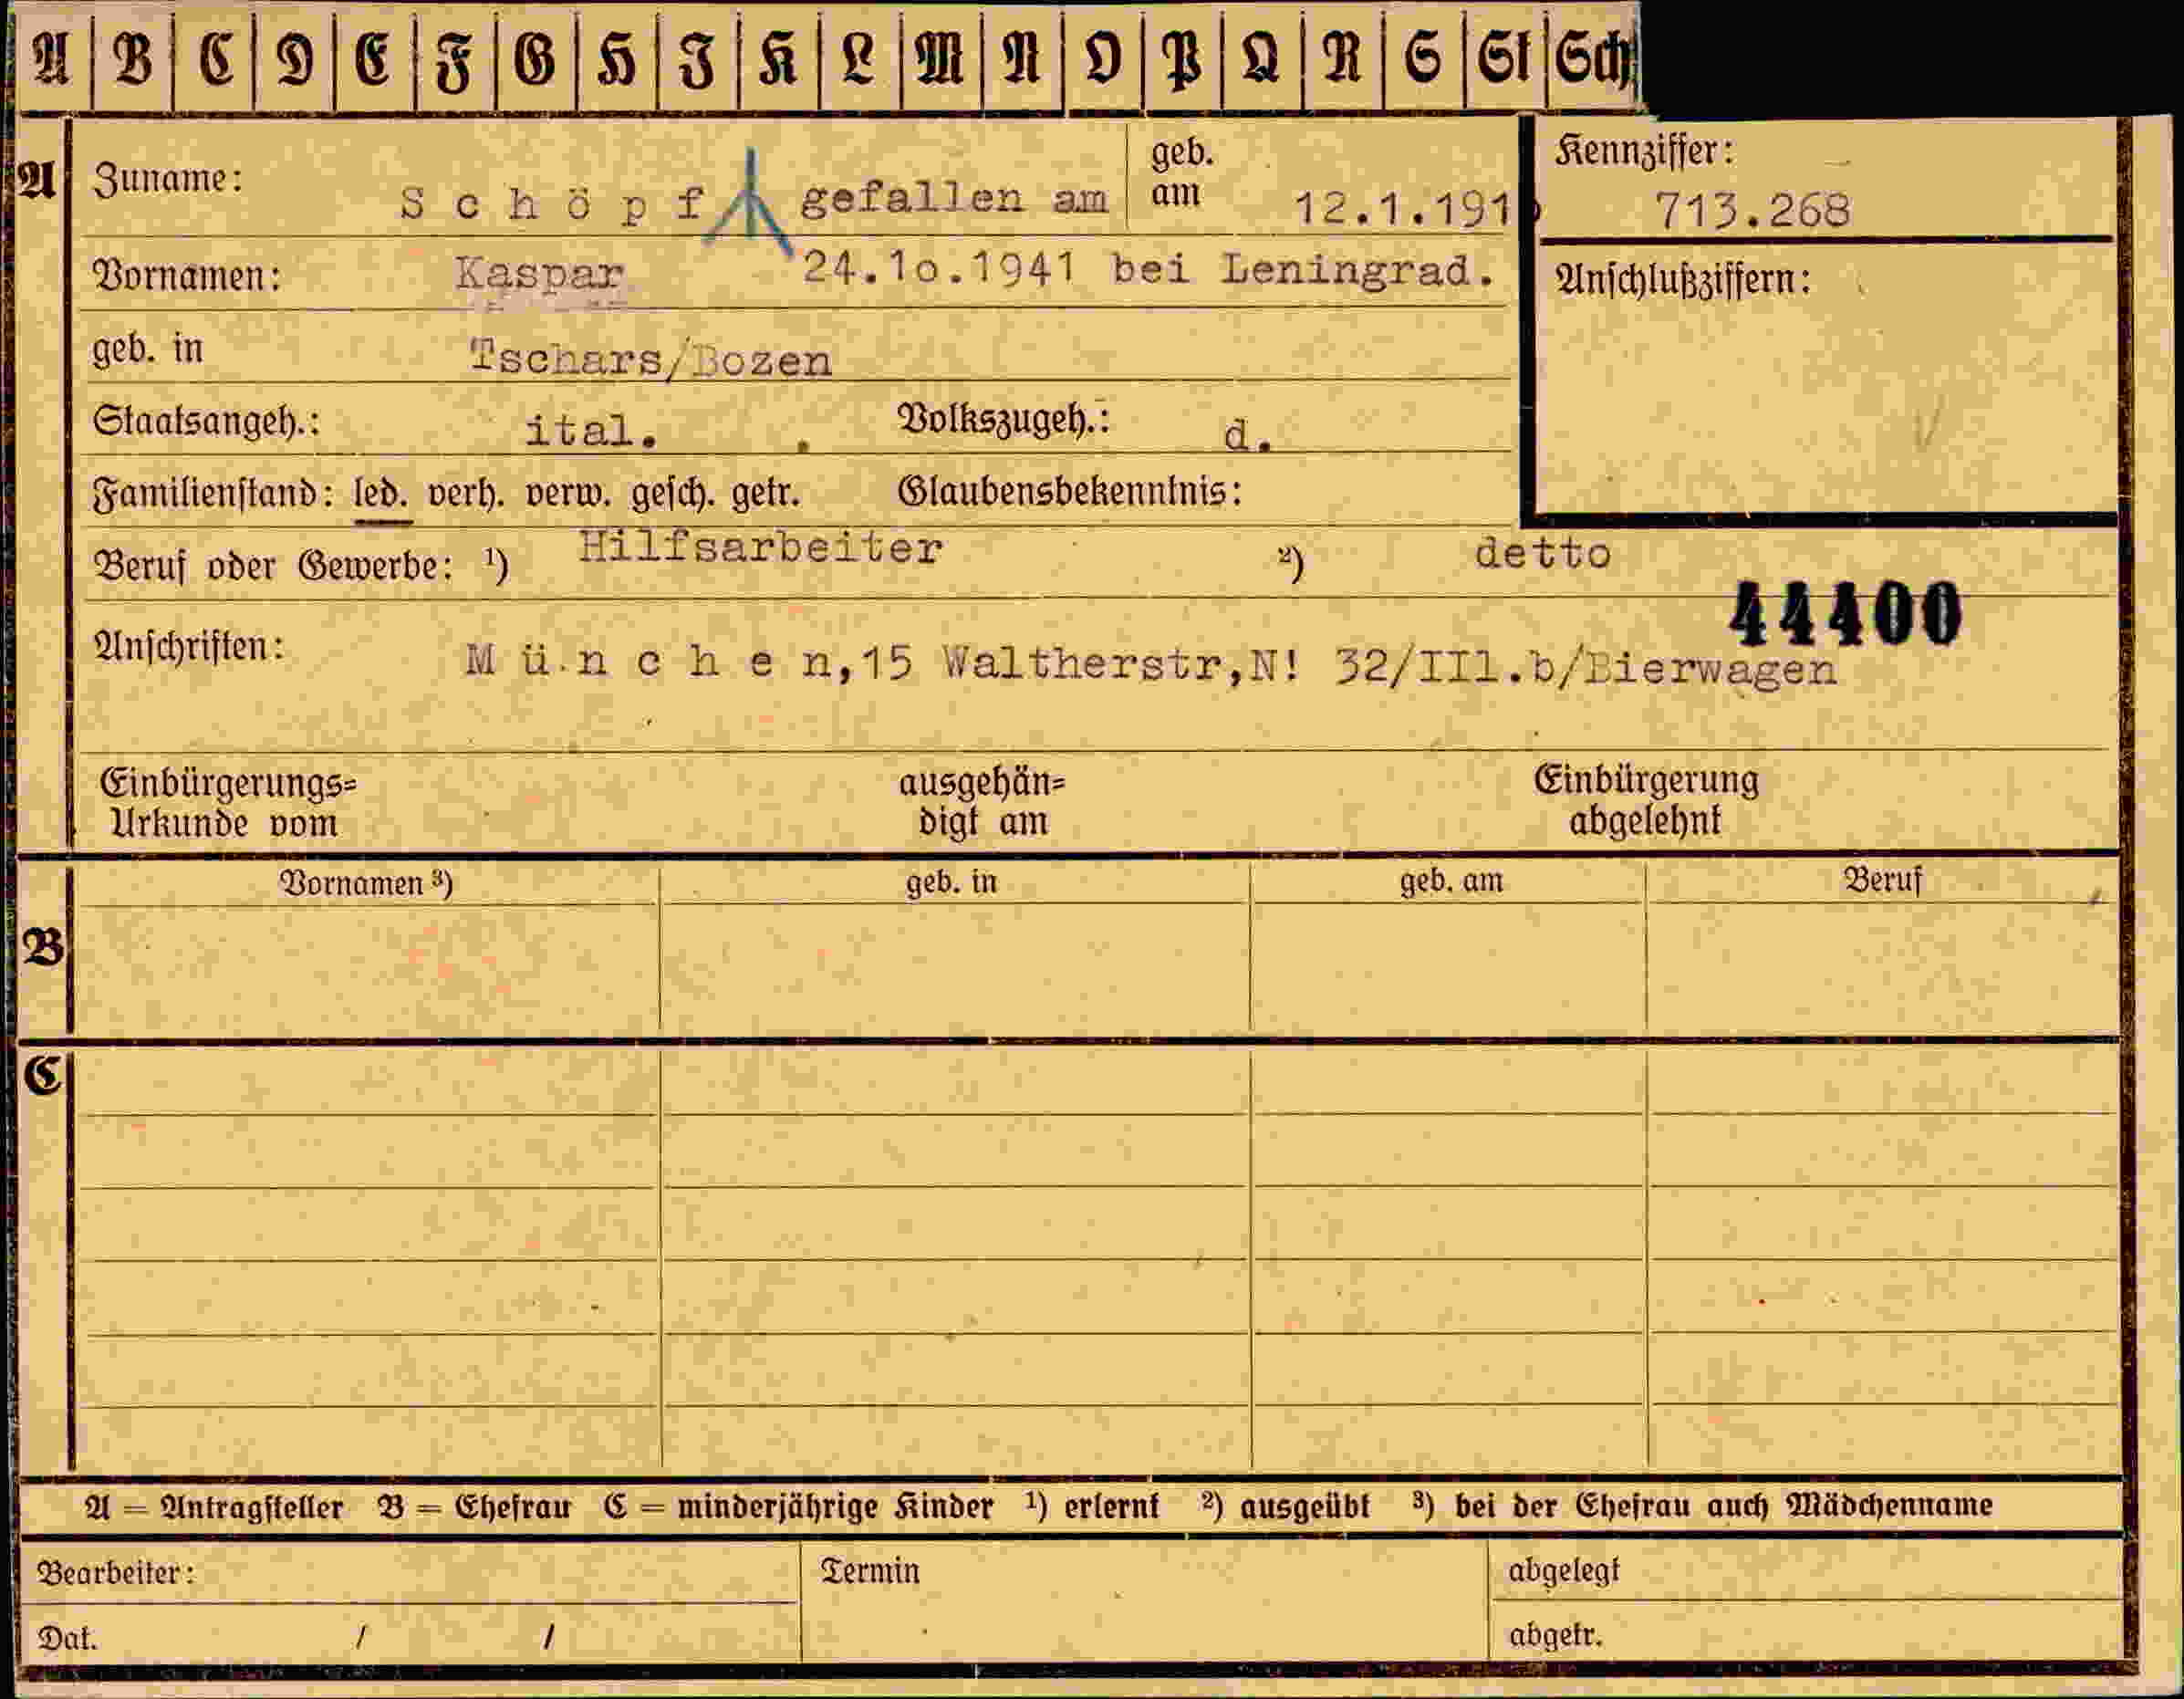 A B C D E F G H I K L M N O P Q R S St Sch
A Zuname: Schöpf gefallen am geb. am 12.1.191 Kennziffer: 713.268
Vornamen: Kaspar 24.1o.1941 bei Leningrad. Anschlußziffern:
geb. in Tschars/Bozen
Staatsangeh.: ital. . Volkszugeh.: d.
Familienstand: led. verh. verw. gesch. getr. Glaubensbekenntnis:
Beruf oder Gewerbe: ¹) Hilfsarbeiter ²) detto
44400
Anschriften: M ü.n c h e n,15 Waltherstr,N! 32/III.b/Bierwagen
Einbürgerungs= ausgehän= Einbürgerung
Urkunde vom digt am abgelehnt
Vornamen ³) geb. in geb. am Beruf
B
C
A = Antragsteller B = Ehefrau C = minderjährige Kinder ¹) erlernt ²) ausgeübt ³) bei der Ehefrau auch Mädchenname
Bearbeiter: Termin abgelegt
Dat. / / abgetr.